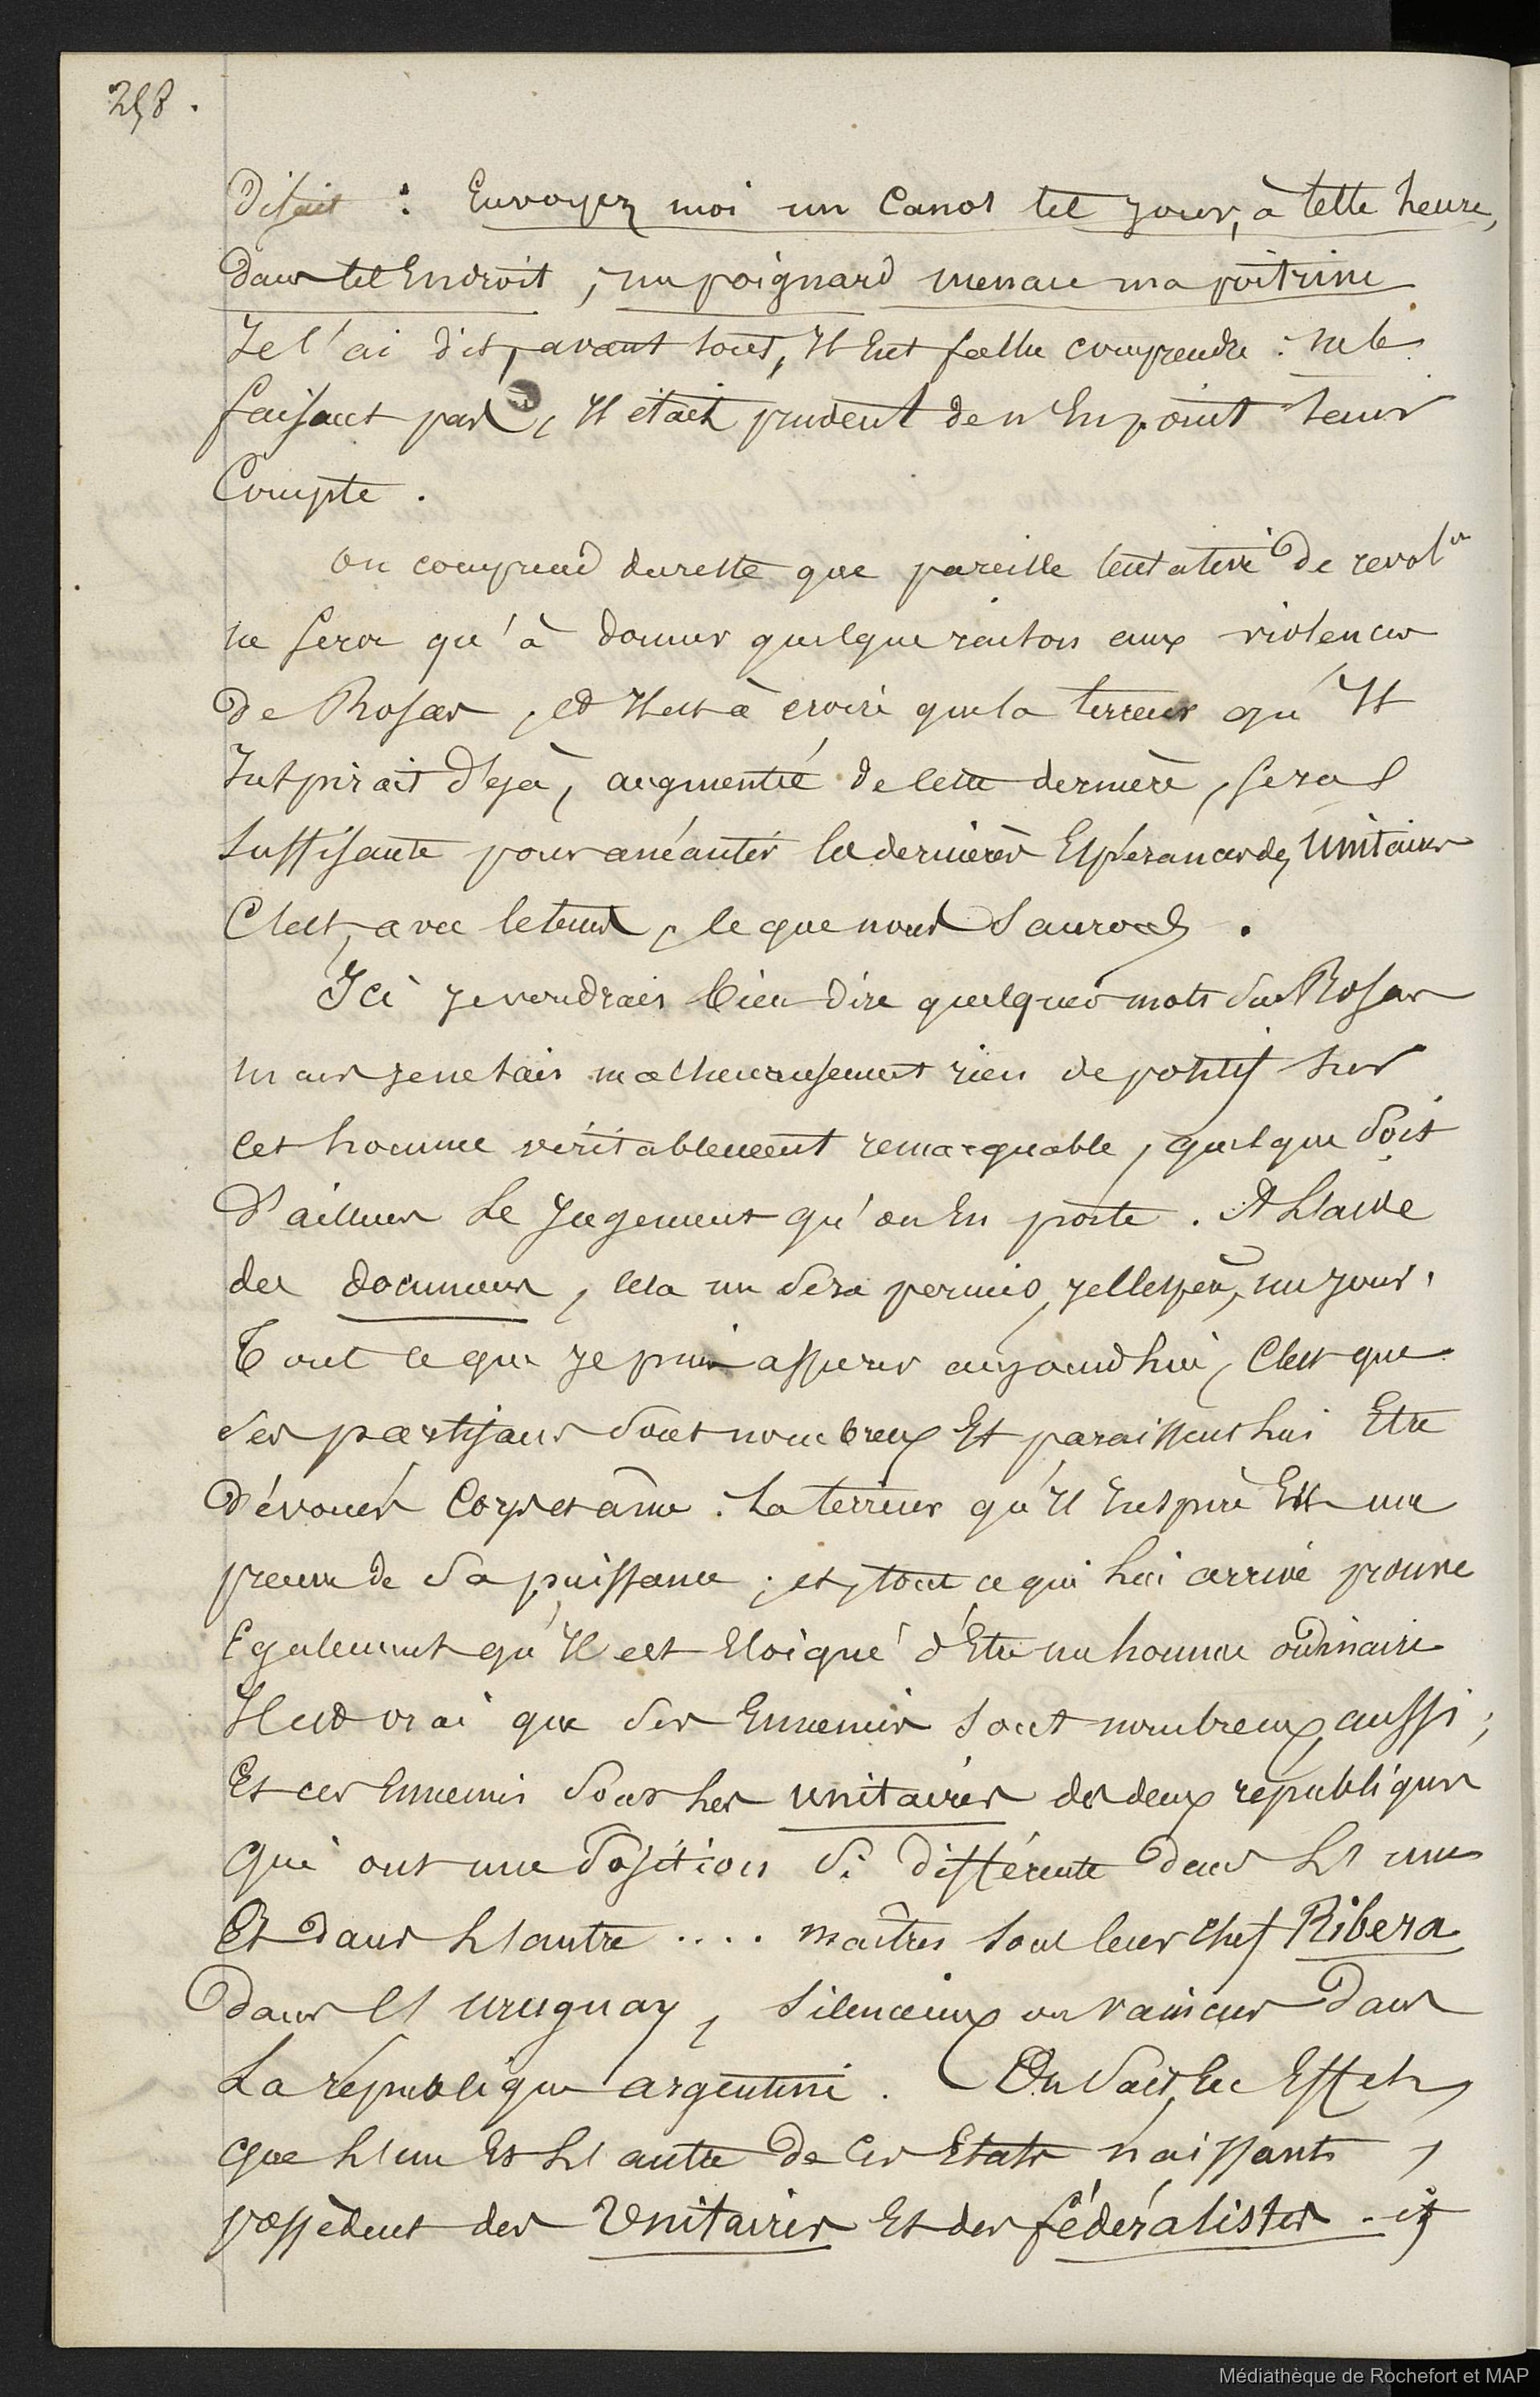 258.
Disait : Envoyez moi un Canot tel jour, à telle heure,
Dans tel Endroit ; un poignard menace ma poitrine
Je l'ai dit, avant tout, Il Eut fallu comprendre : ne le
faisant pas, Il était prudent de n'En point tenir
Compte.
On comprend dureste que pareille tentative de revol.on
ne sera qu'à donner quelque raison aux violences
de Rosas, et Il est à croire que la terreur qu'Il
Inspirait déjà, augmentée de cette dernière, sera
suffisante pour anéantir les dernières Espérances des Unitaires
C'est, avec le tems, ce que nous saurons.
Ici je voudrais bien dire quelques mots sur Rosas
mais je ne sais malheureusement rien de positif sur
cet homme véritablement remarquable, quelque soit
D'ailleurs Le Jugement qu'on En porte. A L'aide
des documens, cela me sera permis, je l'espère, un jour.
Tout ce que je puis assurer aujourdhui, C'est que
ses partisans sont nombreux Et paraissent lui Etre
Dévoués Corps et âme. La terreur qu'Il Inspire Est une
preuve de sa puissance ; et, tout ce qui lui arrive prouve
Egalement qu'Il est Eloigné d'Etre un homme ordinaire
Il est vrai que ses Ennemis sont nombreux aussi ;
Et ces Ennemis sont les unitaires des deux républiques
qui ont une position si différente dans L'une
Et dans L'autre .... maîtres sous leur chef Ribera
Dans l'uruguay, silencieux ou vaincus Dans
La république argentine. On sait, En Effet,
que L'un Et L'autre de ces Etats naissants,
possèdent des Unitaires Et des fédéralistes.
Médiathèque de Rochefort et MAP